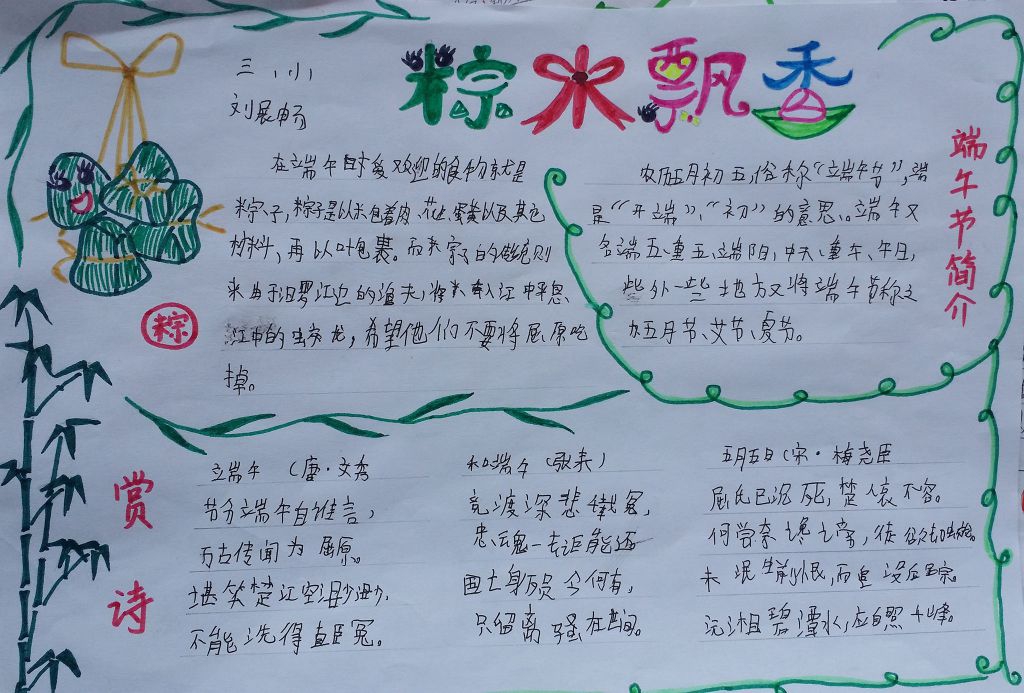 粽米飘香
三,小
刘展畅
在端午时受欢迎的食物就是
粽子,粽子是以米包着肉、花生、蛋黄以及其它
材料,再以叶包裹。而米粽子的做绝则
来由于汨罗江边的渔夫,将米丢入江中平息
江中的蛟龙,希望他们不要将屈原吃
掉。
粽
农历五月初五,俗称“端午节”,端
是“开端”、“初”的意思。端午又
名端五、重五、端阳、中天、重午、午日,
些外一些地方又将端午节称之
为五月节、艾节、夏节。
端午节简介
赏诗
端午 (唐·文秀
节分端午自谁言,
万古传闻为屈原。
堪笑楚江空渺渺,
不能洗得直臣冤。
和端午(张耒)
竞渡深悲千载冤,
忠魂一去讵能还
国亡身殒今何有,
只留离骚在世间。
五月五日(宋·梅尧臣
屈氏已沉死,楚人哀不容。
何尝奈谗谤,徒欲却蛟龙。
未泯生前恨,而追没后踪。
沅湘碧潭水,应自照千峰。